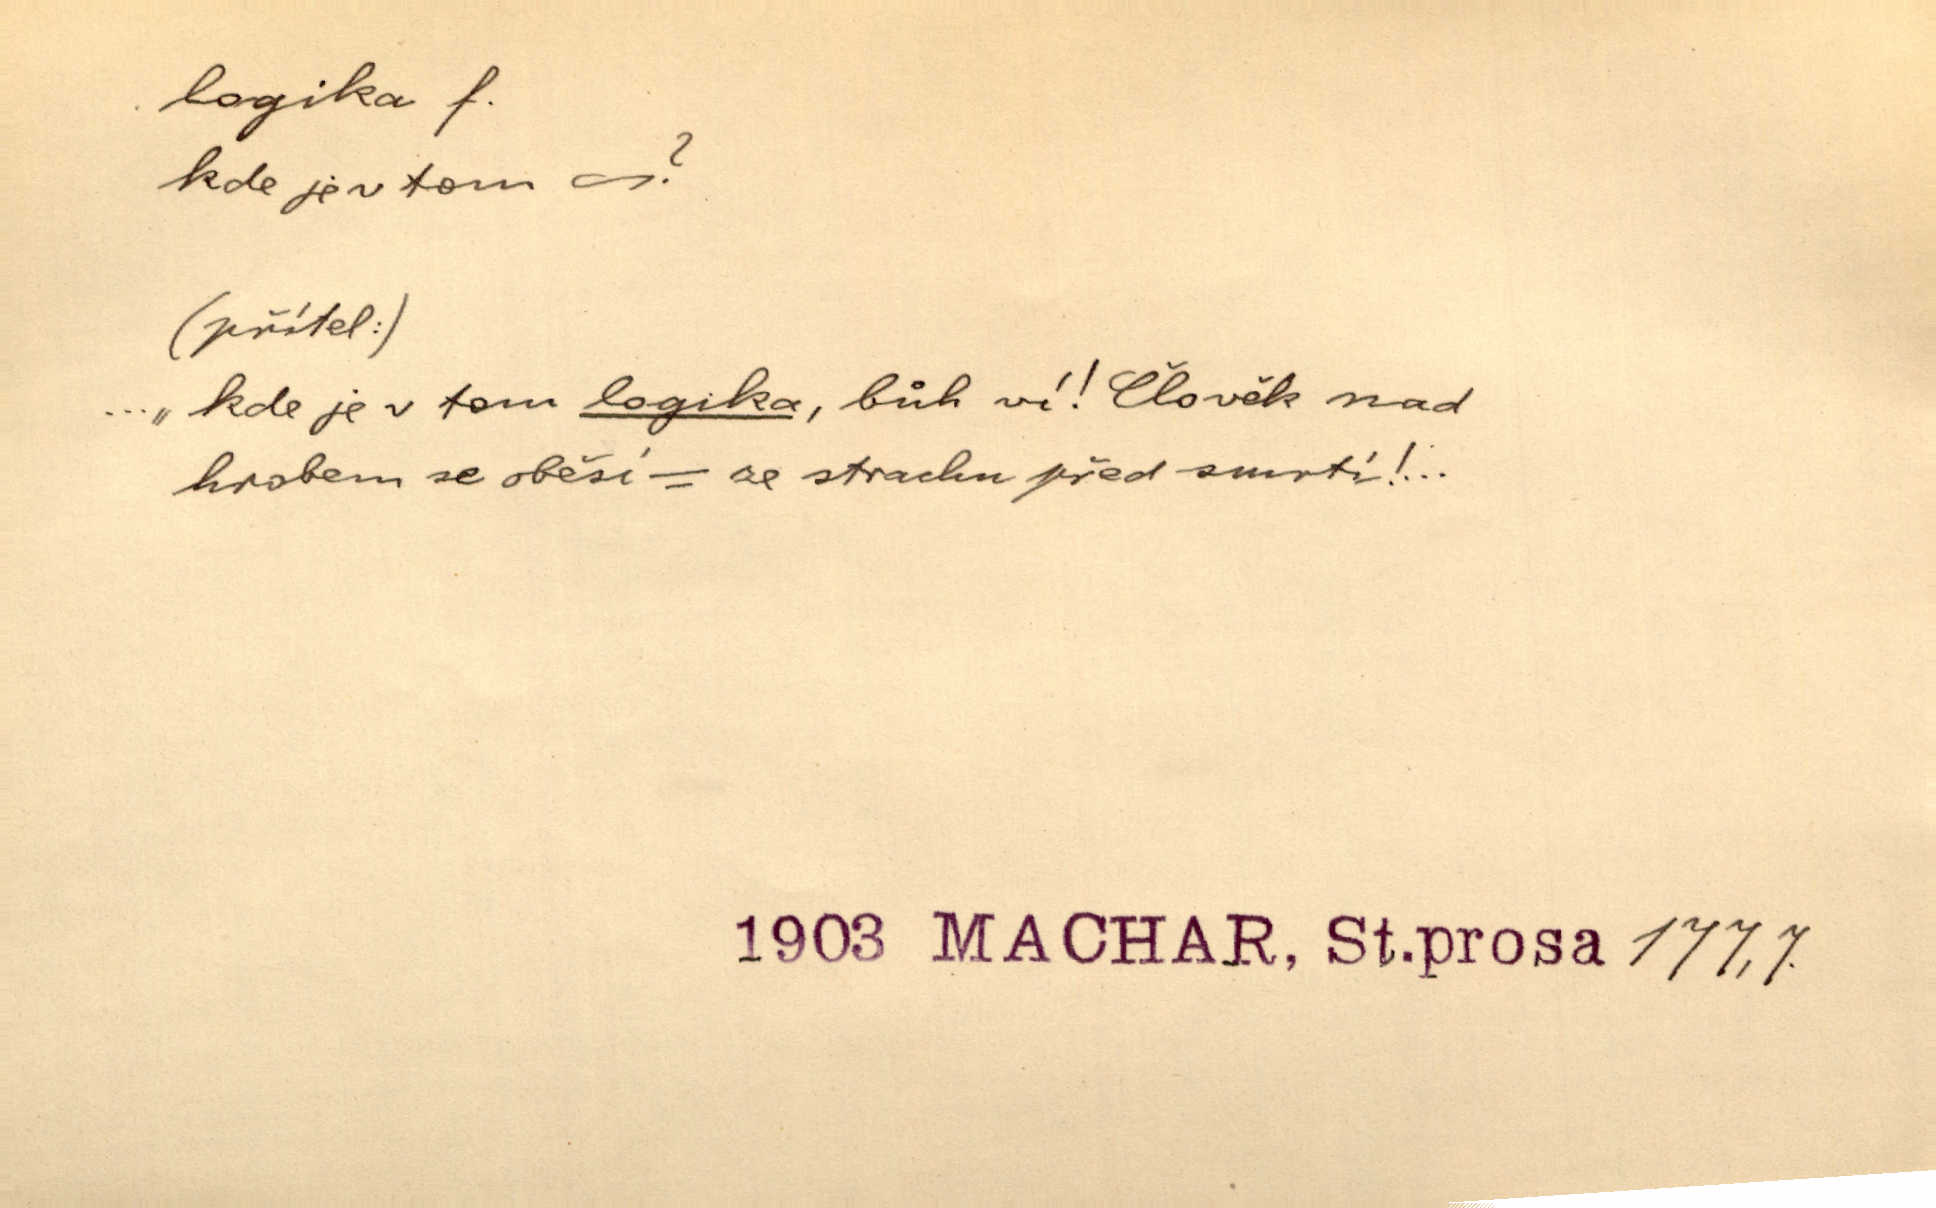 logika f.
kde je v tom ~?
(přítel:)
..." kde je v tom logika, bůh ví! Člověk nad
hrobem se oběsí — ze strachu před smrtí!...
1903 MACHAR, St.prosa 177,7.